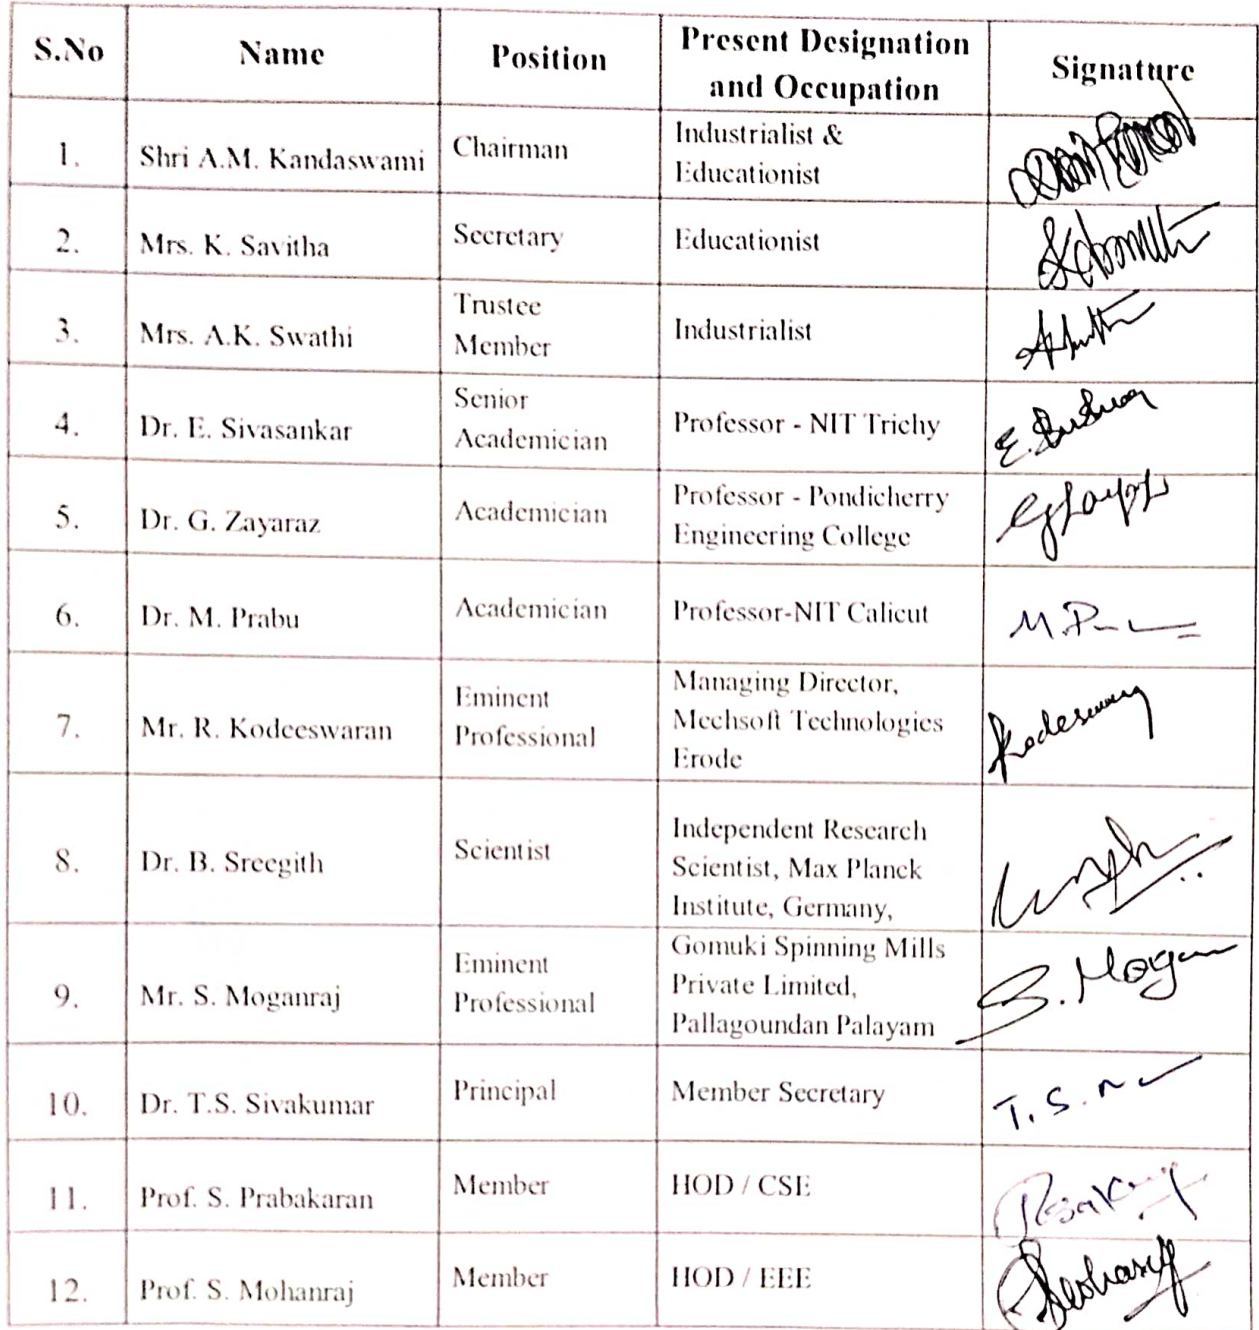 S.No Name Position Present Designation
and Occupation Signature
1. Shri A.M. Kandaswami Chairman Industrialist &
Educationist
2. Mrs. K. Savitha Secretary Educationist
3. Mrs. A.K. Swathi Trustee
Member Industrialist
4. Dr. E. Sivasankar Senior
Academician Professor - NIT Trichy E.
5. Dr. G. Zayaraz Academician Professor - Pondicherry
Engineering College
6. Dr. M. Prabu Academician Professor-NIT Calicut M.P
7. Mr. R. Kodeeswaran Eminent
Professional Managing Director,
Mechsoft Technologies
Erode
8. Dr. B. Sreegith Scientist Independent Research
Scientist, Max Planck
Institute, Germany,
9. Mr. S. Moganraj Eminent
Professional Gomuki Spinning Mills
Private Limited,
Pallagoundan Palayam S. Mogan
10. Dr. T.S. Sivakumar Principal Member Secretary T.S.
11. Prof. S. Prabakaran Member HOD / CSE
12. Prof. S. Mohanraj Member HOD / EEE